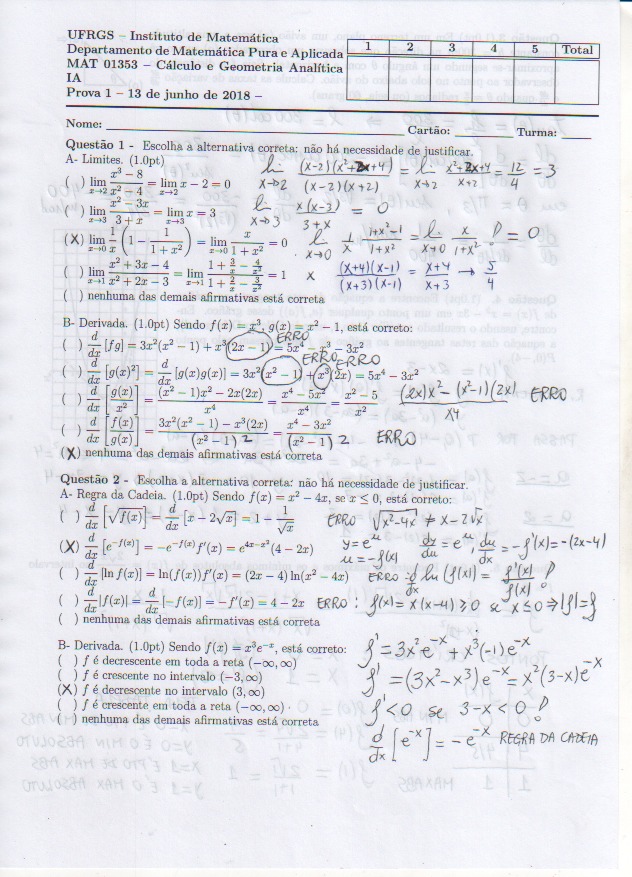 UFRGS – Instituto de Matemática
Departamento de Matemática Pura e Aplicada
MAT 01353 – Cálculo e Geometria Analítica
IA
Prova 1 – 13 de junho de 2018 –
1 2 3 4 5 Total
Nome: Cartão: Turma:
Questão 1 - Escolha a alternativa correta: não há necessidade de justificar.
A- Limites. (1.0pt)
( ) lim x→2 (x³ − 8)/(x² − 4) = lim x→2 x − 2 = 0
lim x→2 (x-2)(x²+2x+4)/((x-2)(x+2)) = lim x→2 (x²+2x+4)/(x+2) = 12/4 = 3
( ) lim x→3 (x² − 3x)/(3 + x) = lim x→3 x = 3
lim x→3 x(x-3)/(3+x) = 0
(X) lim x→0 1/x (1 − 1/(1 + x²)) = lim x→0 x/(1 + x²) = 0
lim x→0 1/x (1+x²-1)/(1+x²) = lim x→0 x/(1+x²) = 0
( ) lim x→1 (x² + 3x − 4)/(x² + 2x − 3) = lim x→1 (1 + 3/x − 4/x²)/(1 + 2/x − 3/x²) = 1
x (x+4)(x-1)/((x+3)(x-1)) = (x+4)/(x+3) → 5/4
( ) nenhuma das demais afirmativas está correta
B- Derivada. (1.0pt) Sendo f(x) = x³, g(x) = x² − 1, está correto:
( ) d/dx [fg] = 3x²(x² − 1) + x³(2x − 1) = 5x⁴ − x³ − 3x² ERRO
( ) d/dx [g(x)²] = d/dx [g(x)g(x)] = 3x²(x² − 1) + x³(2x) = 5x⁴ − 3x² ERRO ERRO
( ) d/dx [g(x)/x²] = ((x² − 1)x² − 2x(2x))/x⁴ = (x⁴ − 5x²)/x⁴ = (x² − 5)/x² ((2x)x² − (x²−1)(2x))/x⁴ ERRO
( ) d/dx [f(x)/g(x)] = (3x²(x² − 1) − x³(2x))/(x² − 1)² = (x⁴ − 3x²)/(x² − 1)² ERRO
(X) nenhuma das demais afirmativas está correta
Questão 2 - Escolha a alternativa correta: não há necessidade de justificar.
A- Regra da Cadeia. (1.0pt) Sendo f(x) = x² − 4x, se x ≤ 0, está correto:
( ) d/dx [√f(x)] = d/dx [x − 2√x] = 1 − 1/√x ERRO √(x²-4x) ≠ x-2√x
(X) d/dx [e^−f(x)] = −e^−f(x) f′(x) = e^(4x−x²)(4 − 2x)
y=e^u dy/du = e^u, du/dx = -f'(x) = -(2x-4)
u = -f(x)
( ) d/dx [ln f(x)] = ln(f(x))f′(x) = (2x − 4) ln(x² − 4x) ERRO d/dx ln(f(x)) = f'(x)/f(x)
( ) d/dx |f(x)| = d/dx [−f(x)] = −f′(x) = 4 − 2x ERRO: f(x) = x(x-4) ≥ 0 se x ≤ 0 ⇒ |f| = f
( ) nenhuma das demais afirmativas está correta
B- Derivada. (1.0pt) Sendo f(x) = x³e^−x, está correto:
( ) f é decrescente em toda a reta (−∞, ∞)
( ) f é crescente no intervalo (−3, ∞)
(X) f é decrescente no intervalo (3, ∞)
( ) f é crescente em toda a reta (−∞, ∞)
( ) nenhuma das demais afirmativas está correta
f' = 3x²e^-x + x³(-1)e^-x
f' = (3x² - x³)e^-x = x²(3-x)e^-x
f' < 0 se 3-x < 0
d/dx [e^-x] = -e^-x REGRA DA CADEIA